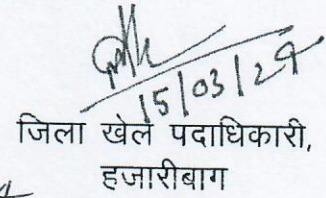 15/03/29
जिला खेल पदाधिकारी,
हजारीबाग